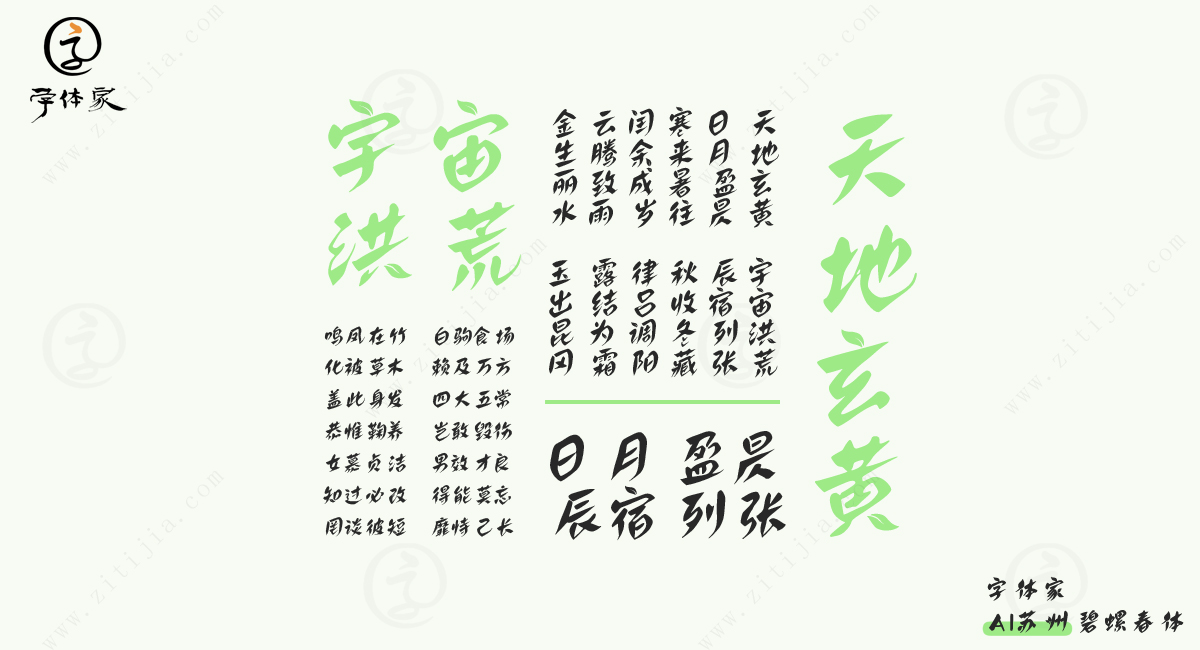 字体家
天地玄黄
宇宙
洪荒
天地玄黄
日月盈昃
寒来暑往
闰余成岁
云腾致雨
金生丽水
宇宙洪荒
辰宿列张
秋收冬藏
律吕调阳
露结为霜
玉出昆冈
鸣凤在竹 白驹食场
化被草木 赖及万方
盖此身发 四大五常
恭惟鞠养 岂敢毁伤
女慕贞洁 男效才良
知过必改 得能莫忘
罔谈彼短 靡恃己长
日月 盈昃
辰宿 列张
字体家
AI苏州碧螺春体
www.zitijia.com